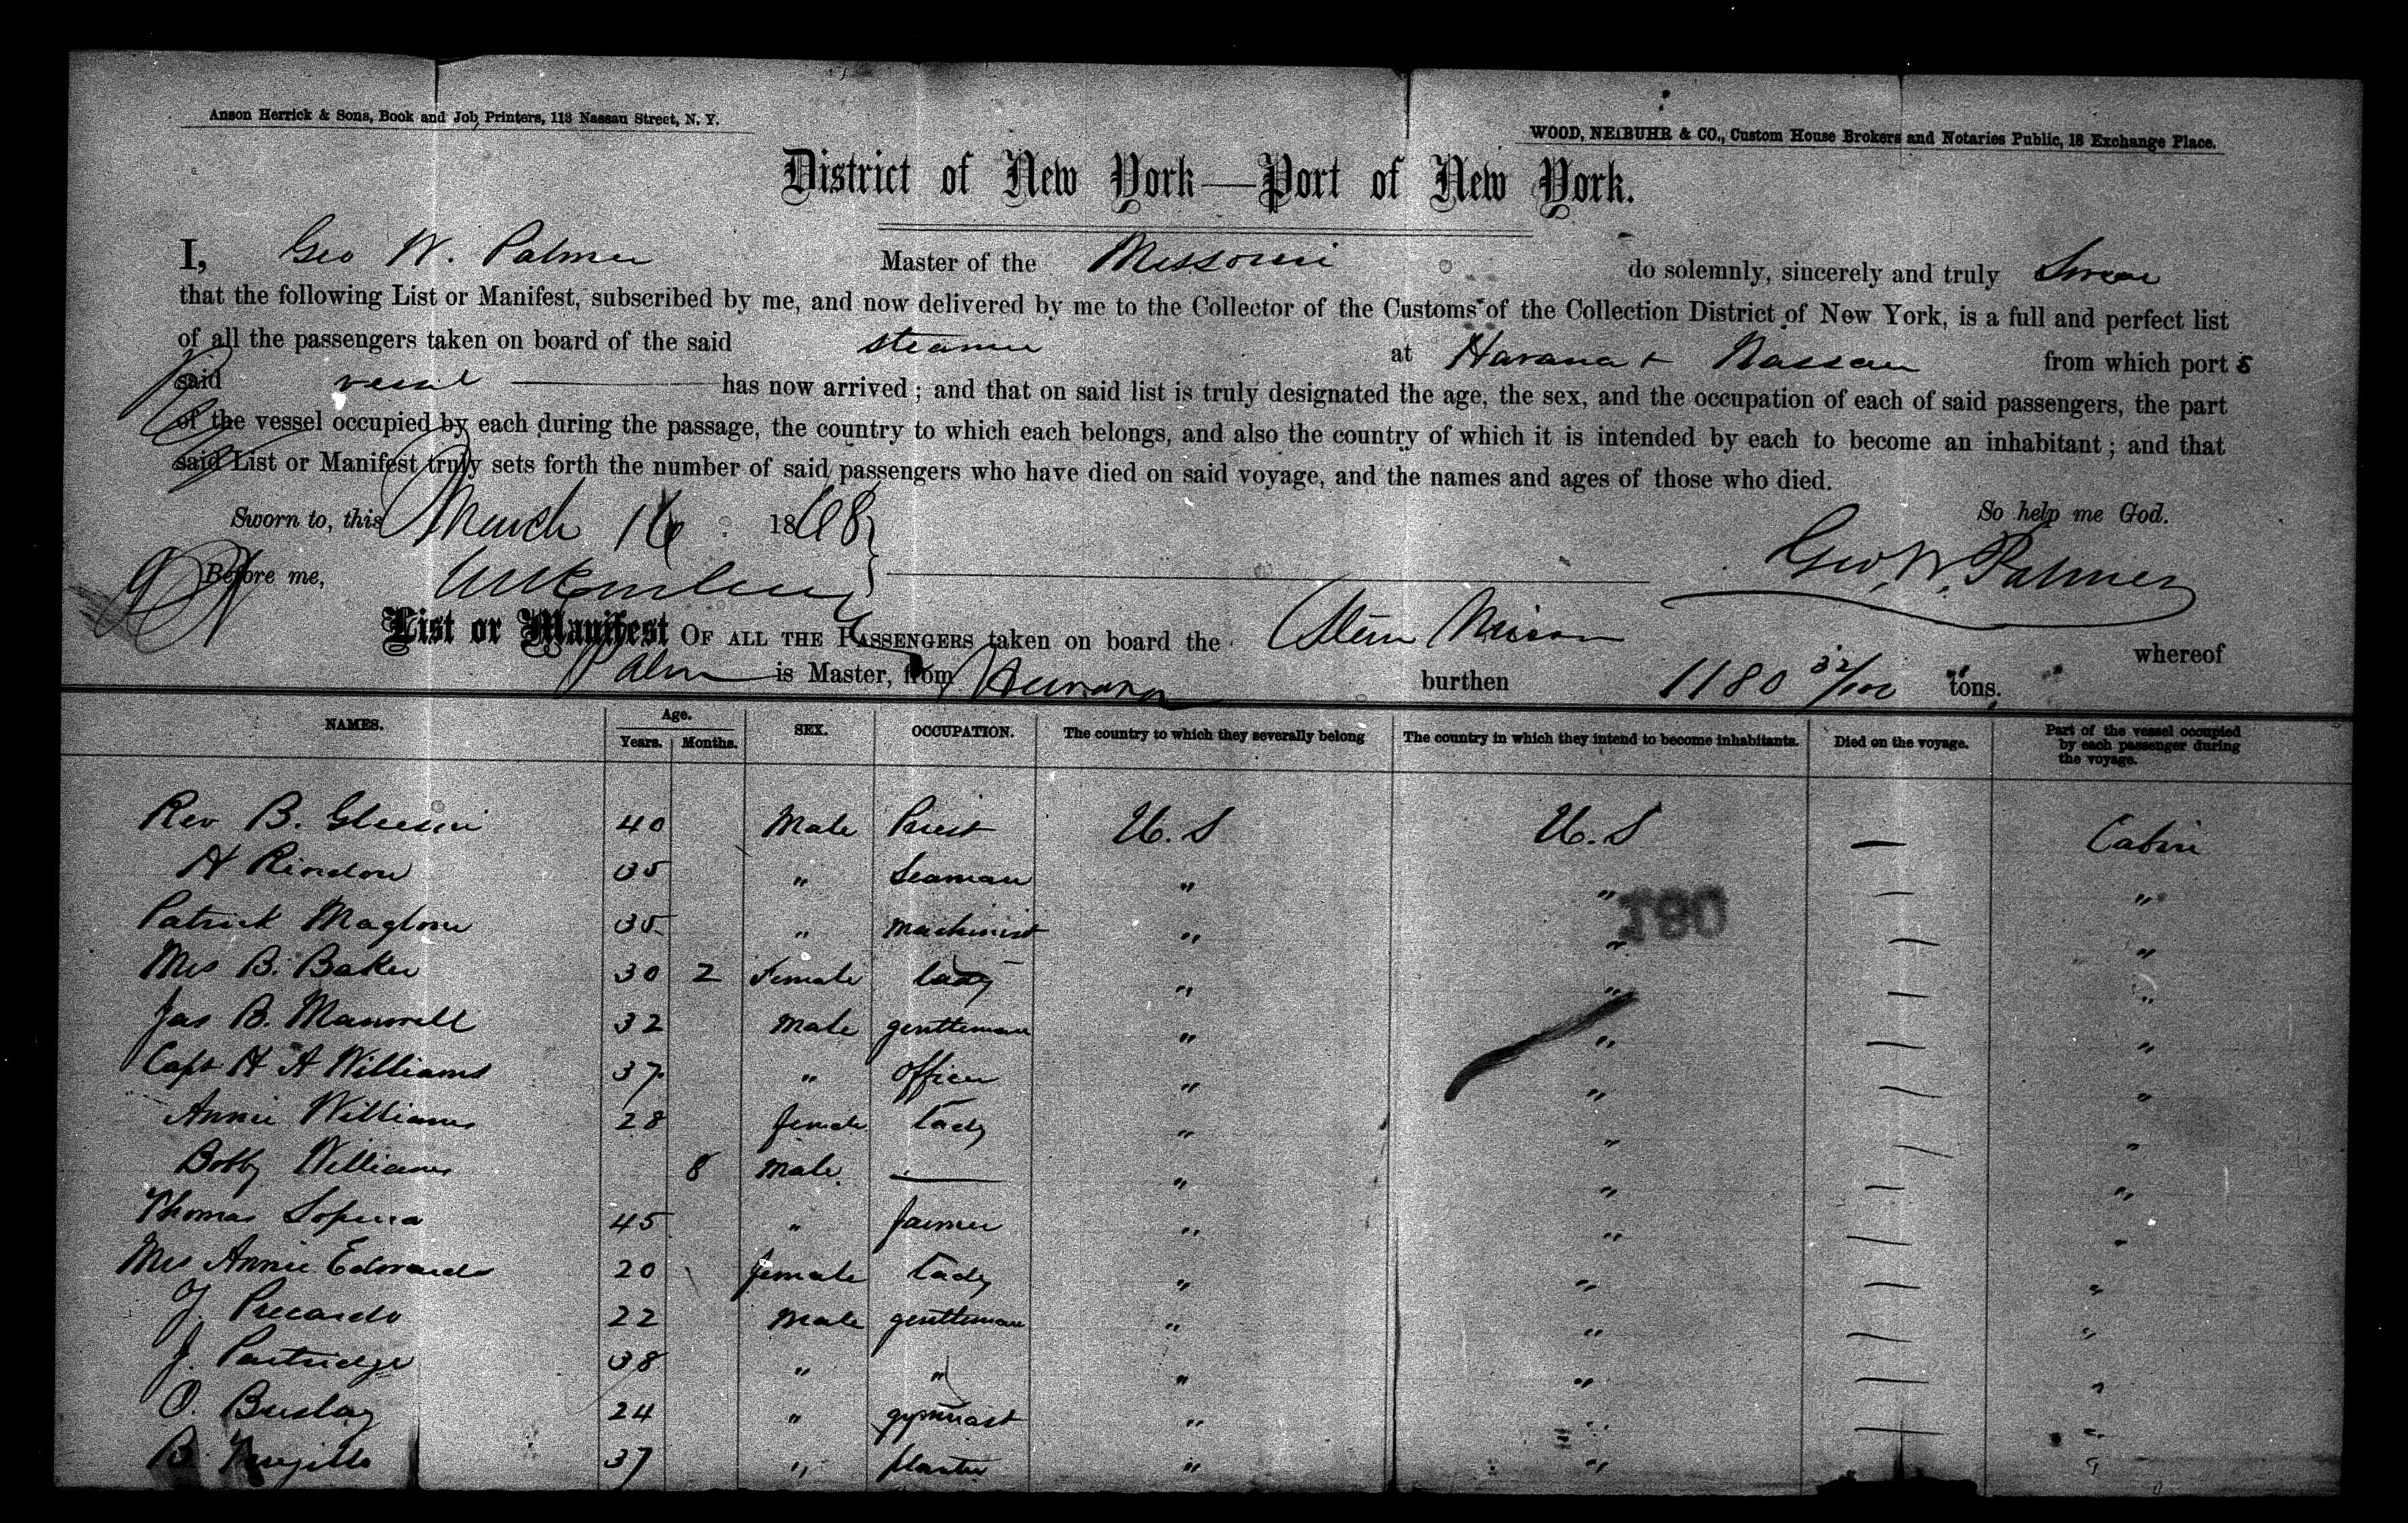 Anson Herrick & Sons, Book and Job Printers, 113 Nassau Street, N. Y.
WOOD, NEIBUHR & CO., Custom House Brokers and Notaries Public, 18 Exchange Place.
District of New York—Port of New York.
I, Geo W. Palmer Master of the Missouri do solemnly, sincerely and truly Swear
that the following List or Manifest, subscribed by me, and now delivered by me to the Collector of the Customs of the Collection District of New York, is a full and perfect list
of all the passengers taken on board of the said steamer at Havana + Nassau from which port s
said vessel has now arrived; and that on said list is truly designated the age, the sex, and the occupation of each of said passengers, the part
of the vessel occupied by each during the passage, the country to which each belongs, and also the country of which it is intended by each to become an inhabitant; and that
said List or Manifest truly sets forth the number of said passengers who have died on said voyage, and the names and ages of those who died.
Sworn to, this March 16 1868 So help me God.
Before me, Geo. W. Palmer
List or Manifest OF ALL THE PASSENGERS taken on board the whereof
is Master, from Havana burthen 1180 32/100 tons.
NAMES. Age. Years. Months. SEX. OCCUPATION. The country to which they severally belong The country in which they intend to become inhabitants. Died on the voyage. Part of the vessel occupied by each passenger during the voyage.
Rev B. Gleeson 40 Male Priest U. S U. S — Cabin
H Rindon 35 " Seaman " " — "
180
Patrick Maglone 35 " machinist " " — "
Mrs B. Baker 30 2 Female lady " " — "
Jas B. Maxwell 32 Male gentleman " " — "
Capt H A Williams 37 " officer " " — "
Annie Williams 28 female lady " " — "
Bobby Williams 8 male — " " — "
Thomas 45 " farmer " " — "
Mrs Annie Edwards 20 female lady " " — "
J. Piccardo 22 Male gentleman " " — "
J. Partridge 38 " " " " — "
O. Buslay 24 " gymnast " " — "
B. Trujillo 37 " planter " " "